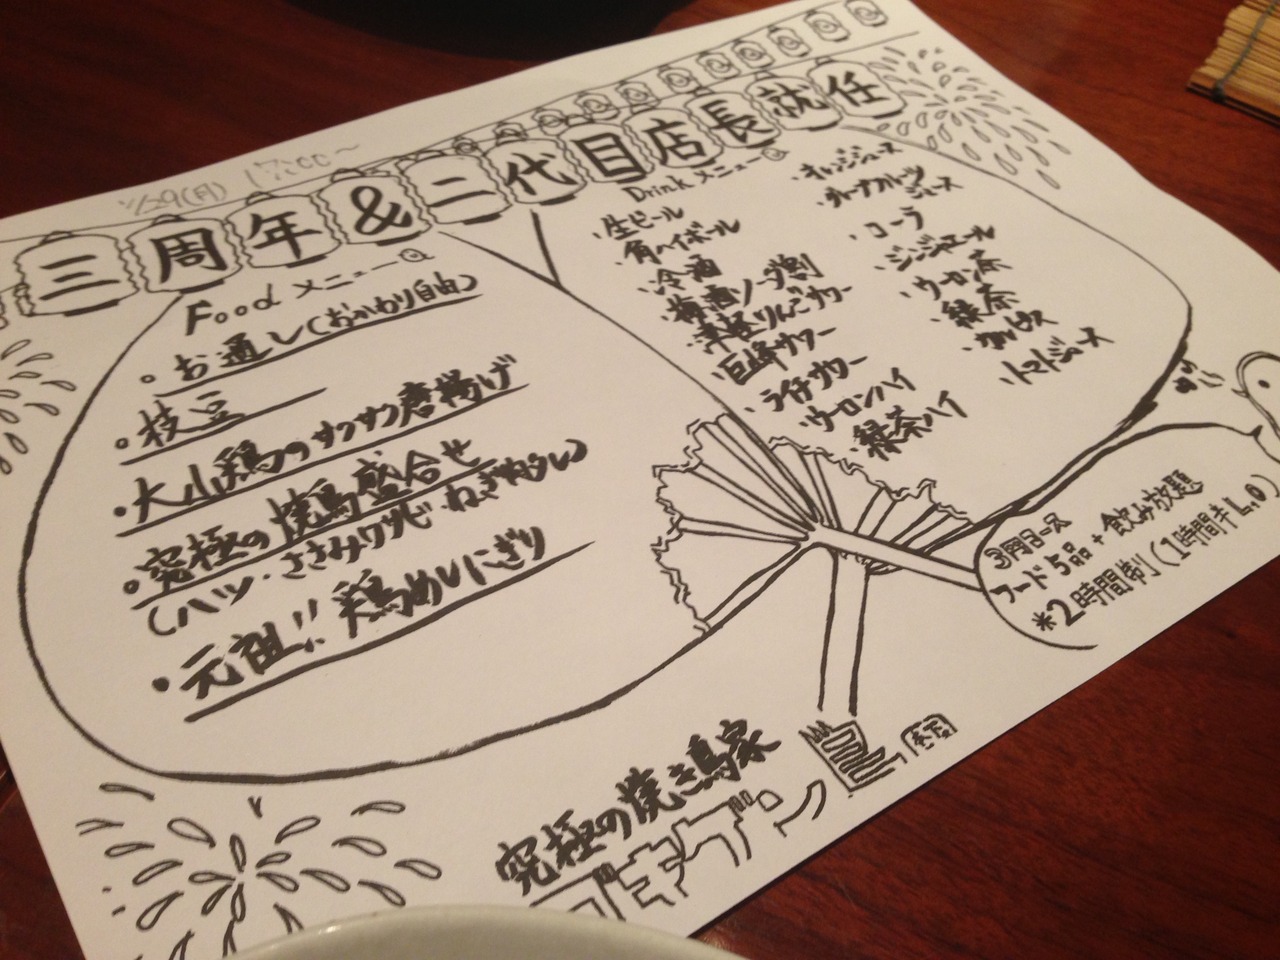 1/29(月) 17:00〜
三周年&二代目店長就任
Food メニュー
お通し(おかわり自由)
枝豆
大山鶏のサクサク唐揚げ
究極の焼鳥盛合せ
(ハツ・ささみワサビ・ねぎ
元祖!! 鶏めしにぎり
Drink メニュー
・生ビール
・角ハイボール
・冷酒
・梅酒ソーダ割
・津軽りんごサワー
・巨峰サワー
・ライチサワー
・ウーロンハイ
・緑茶ハイ
・オレンジジュース
・グレープフルーツ
ジュース
・コーラ
・ジンジャエール
・ウーロン茶
・緑茶
・カルピス
・トマトジュース
フード5品+飲み放題
※2時間制(1時間半L.O)
究極の焼き鳥家